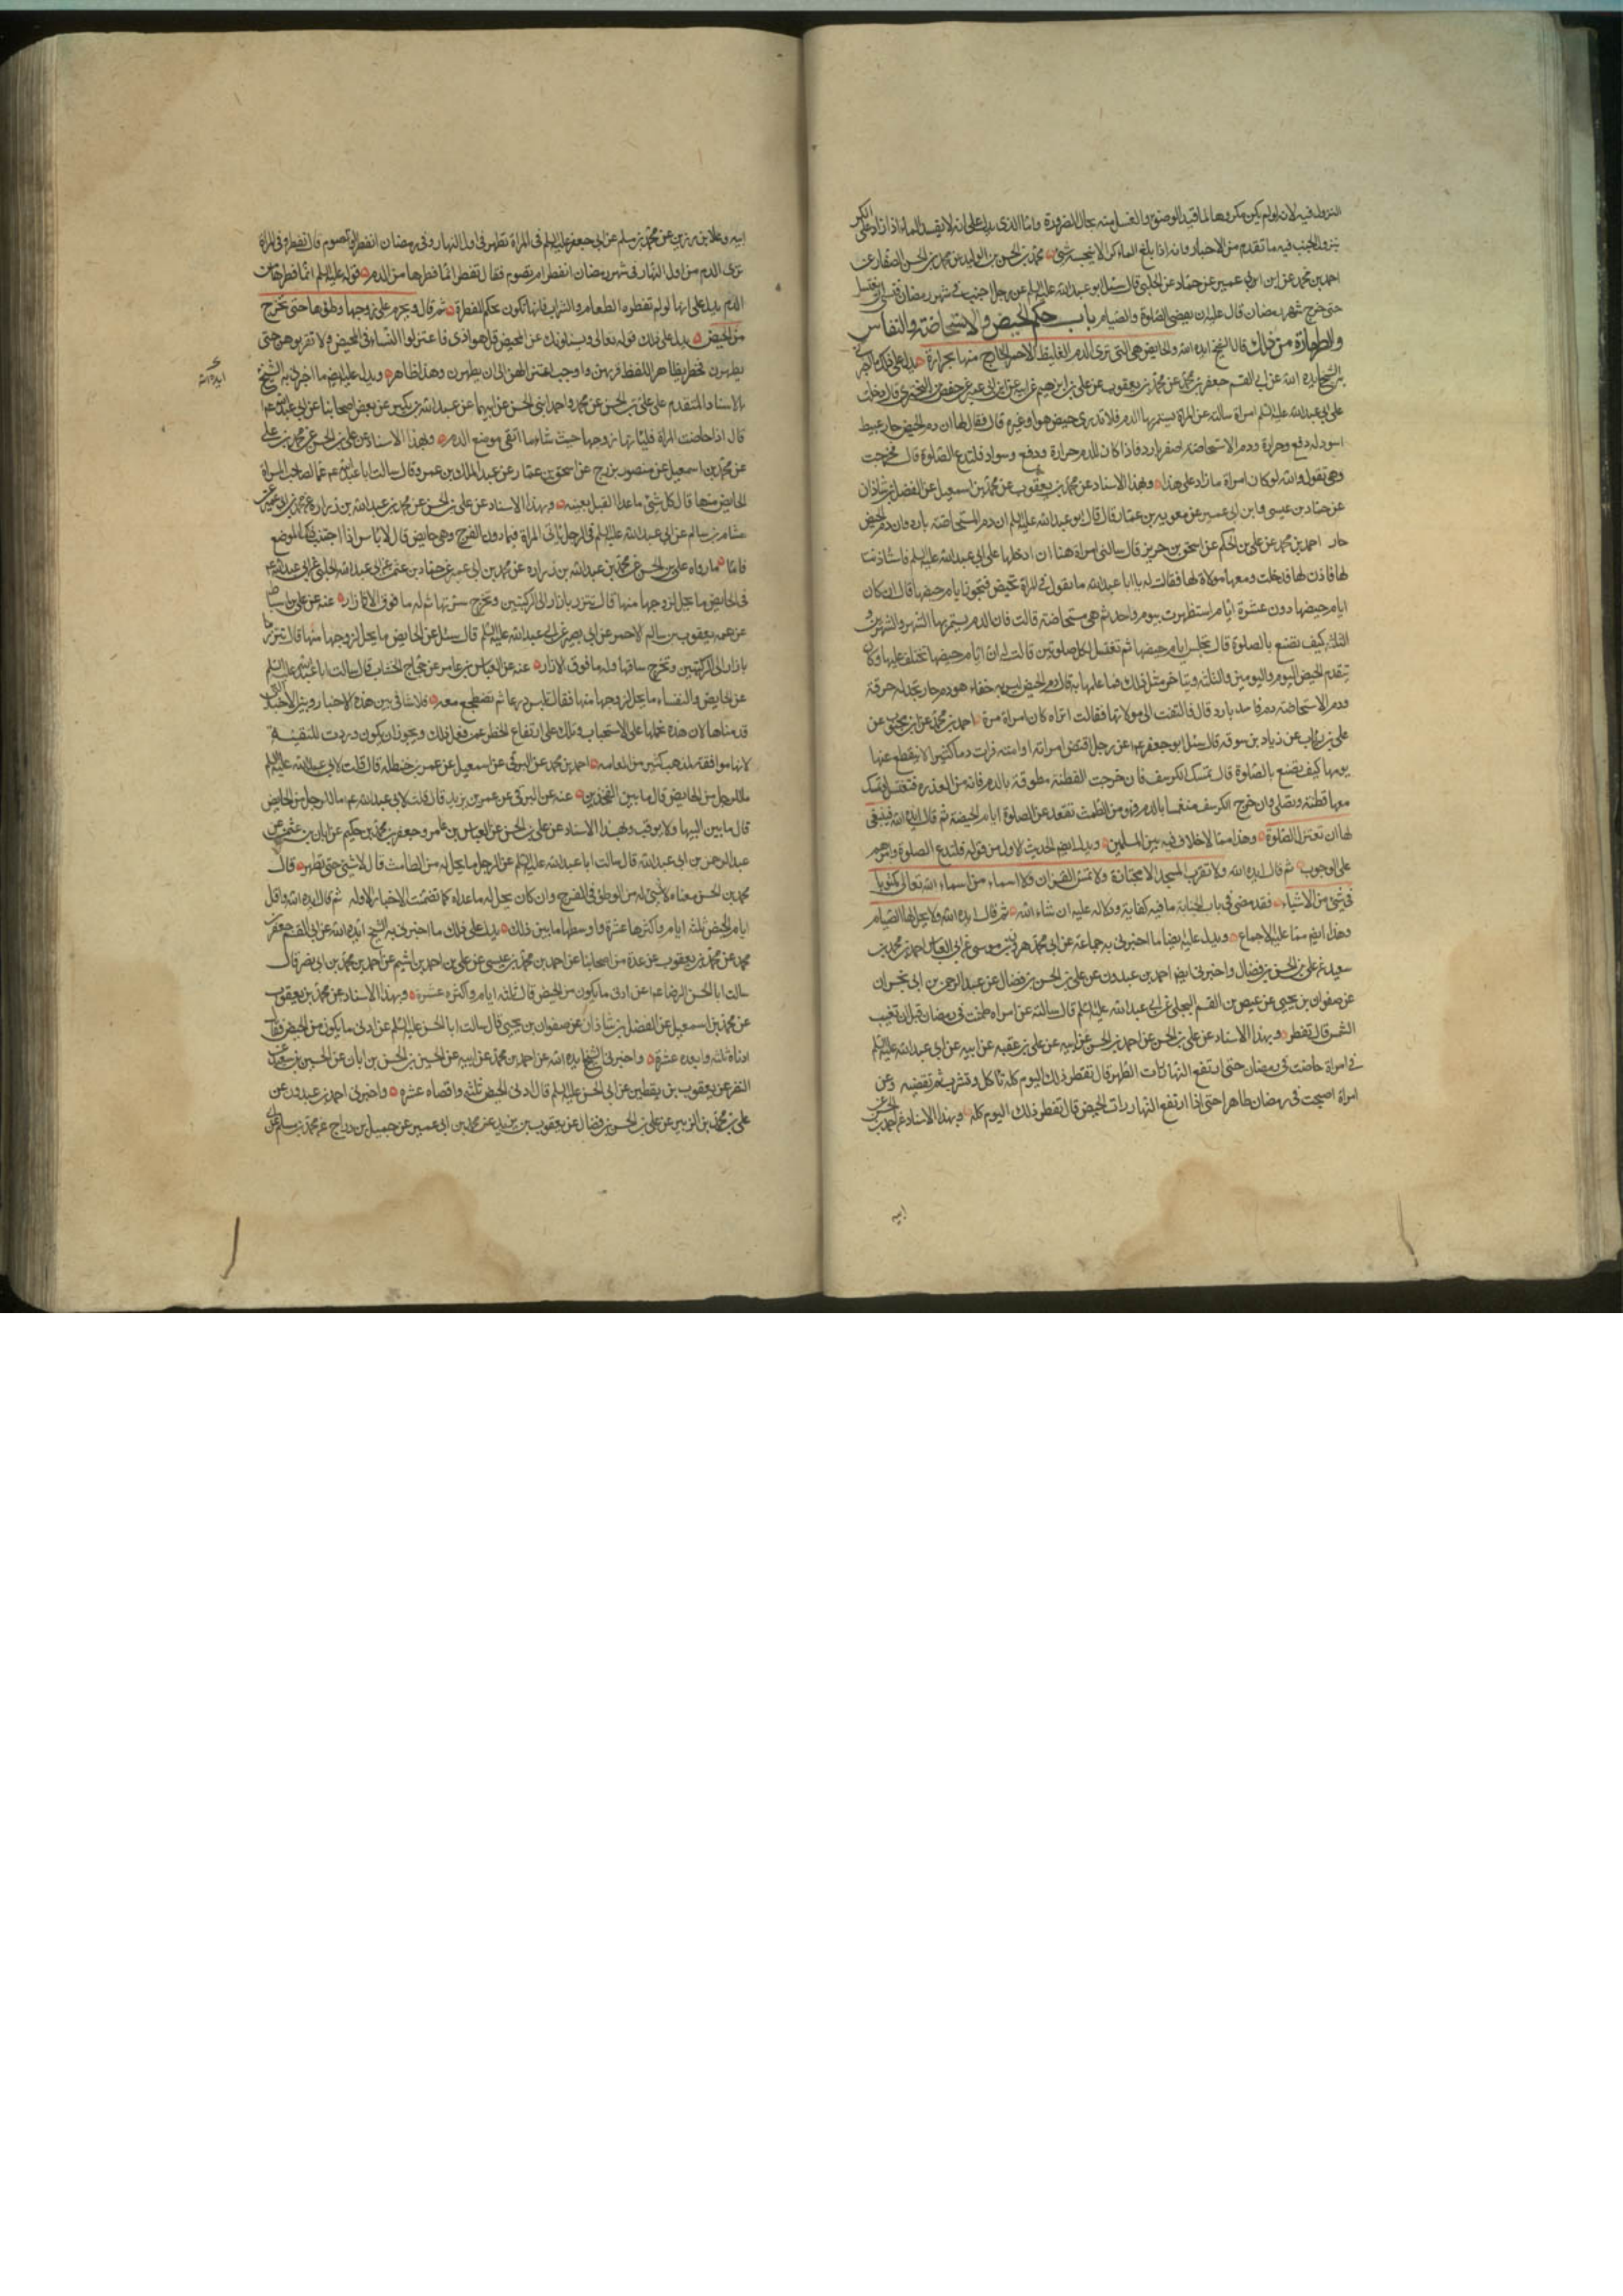 النزول فيه لانه لو لم يكن مكروها لما قيد الوضوء والغسل منه بحال الضرورة واما الذى يدل على انه لا يفسد الماء اذا زاد على الكر
بنزول الجنب فيه ما تقدم من الاخبار وانه اذا بلغ الماء كرا لا ينجسه شئ محمد بن الحسن بن الوليد عن محمد بن الحسن الصفار عن
احمد بن محمد عن ابن ابى عمير عن حماد عن الحلبى قال سئل ابو عبد الله عليه السلم عن رجل اجنب فى شهر رمضان فنسى ان يغتسل
حتى خرج شهر رمضان قال عليه ان يقضى الصلوة والصيام باب حكم الحيض والاستحاضة والنفاس
والطهارة من ذلك قال الشيخ ايده الله والحايض هى التى ترى الدم الغليظ الاحمر الخارج منها بحرارة يدل على ذلك ما اخبرنى
به الشيخ ايده الله عن ابى القسم جعفر بن محمد عن محمد بن يعقوب عن على بن ابرهيم عن ابيه عن ابن ابى عمير عن حفص بن البخترى قال دخلت
على ابى عبد الله عليه السلم امراة سالته عن المراة يستمر بها الدم فلا تدرى حيض هو او غيره قال فقال لها ان دم الحيض حار عبيط
اسود له دفع وحرارة ودم الاستحاضة اصفر بارد فاذا كان للدم حرارة ودفع وسواد فلتدع الصلوة قال فخرجت
وهى تقول والله لو كان امراة ما زاد على هذا وبهذا الاسناد عن محمد بن يعقوب عن محمد بن اسمعيل عن الفضل بن شاذان
عن حماد بن عيسى وابن ابى عمير عن معوية بن عمار قال قال ابو عبد الله عليه السلم ان دم المستحاضة بارد وان دم الحيض
حار احمد بن محمد عن على بن الحكم عن اسحق بن جرير قال سالتنى امراة هنا ان ادخلها على ابى عبد الله عليه السلم فاستاذنت
لها فاذن لها فدخلت ومعها مولاة لها فقالت له يا ابا عبد الله ما تقول فى المراة تحيض فتجوز ايام حيضها قال ان كان
ايام حيضها دون عشرة ايام استظهرت بيوم واحد ثم هى مستحاضة قالت فان الدم يستمر بها الشهر والشهرين و
الثلثة كيف تصنع بالصلوة قال تجلس ايام حيضها ثم تغتسل لكل صلوتين قالت له ان ايام حيضها تختلف عليها وكان
يتقدم الحيض اليوم واليومين والثلثة ويتاخر مثل ذلك فما علمها به قال دم الحيض ليس به خفاء هو دم حار تجد له حرقة
ودم الاستحاضة دم فاسد بارد قال فالتفت الى مولاتها فقالت اتراه كان امراة مرة احمد بن محمد عن ابن محبوب عن
على بن رئاب عن زياد بن سوقه قال سئل ابو جعفر ع عن رجل اقتض امراته او امته فرات دما كثيرا لا ينقطع عنها
يومها كيف تصنع بالصلوة قال تمسك الكرسف فان خرجت القطنة مطوقة بالدم فانه من العذرة فتغتسل وتمسك
معها قطنة وتصلى وان خرج الكرسف منغمسا بالدم فهو من الطمث تقعد عن الصلوة ايام الحيضة ثم قال ايده الله فينبغى
لها ان تعتزل الصلوة وهذا مما لا خلاف فيه بين المسلمين ويدل ايضا الحديث الاول من قوله فلتدع الصلوة وامرهم
على الوجوب ثم قال ايده الله ولا تقرب المسجد الا مجتازة ولا تمس القران ولا اسماء من اسماء الله تعالى مكتوبا
فى شئ من الاشياء فقد مضى فى باب الجنابة ما فيه كفاية ودلالة عليه ان شاء الله ثم قال ايده الله ولا يحل لها الصيام
وهذا ايضا مما عليه الاجماع ويدل عليه ايضا ما اخبرنى به جماعة عن ابى محمد هرون بن موسى عن ابى العباس احمد بن محمد بن
سعيد عن على بن الحسن بن فضال واخبرنى ايضا احمد بن عبدون عن على بن الحسن بن فضال عن عبد الرحمن بن ابى نجران
عن صفوان بن يحيى عن عيص بن القسم البجلى عن ابى عبد الله عليه السلم قال سالته عن امراة طمثت فى رمضان قبل ان تغيب
الشمس قال تفطر وبهذا الاسناد عن على بن الحسن عن احمد بن الحسن عن ابيه عن على بن عقبه عن ابيه عن ابى عبد الله عليه السلم
فى امراة حاضت فى رمضان حتى ارتفع النهار رات الطهر قال تفطر ذلك اليوم كله تاكل وتشرب ثم تقضيه وعن
امراة اصبحت فى رمضان طاهرا حتى اذا ارتفع النهار رات الحيض قال تفطر ذلك اليوم كله وبهذا الاسناد عن احمد بن الحسن عن
ابيه
ابيه وعلا بن رزين عن محمد بن مسلم عن ابى جعفر عليه السلم فى المراة تطهر فى اول النهار وفى رمضان اتفطر او تصوم قال تفطر وفى المراة
ترى الدم من اول النهار فى شهر رمضان اتفطر ام تصوم فقال تفطر انما فطرها من الدم قوله عليه السلم انما فطرها من
الدم يدل على انها لو لم تفطره الطعام والشراب فانها تكون بحكم المفطرة ثم قال ويحرم على زوجها وطؤها حتى تخرج
من الحيض يدل على ذلك قوله تعالى ويسئلونك عن المحيض قل هو اذى فاعتزلوا النساء فى المحيض ولا تقربوهن حتى
يطهرن فحظر بظاهر اللفظ قربهن واوجب اعتزالهن الى ان يطهرن وهذا ظاهر ويدل عليه ايضا ما اخبرنى به الشيخ
ايده الله
بالاسناد المتقدم على على بن الحسن عن محمد واحمد ابنى الحسن عن ابيهما عن عبد الله بن بكير عن بعض اصحابنا عن ابى عبد الله ع
قال اذا حاضت المراة فلياتها زوجها حيث شاء ما اتقى موضع الدم وبهذا الاسناد عن على بن الحسن عن محمد بن على
عن محمد بن اسمعيل عن منصور بزرج عن اسحق بن عمار عن عبد الملك بن عمرو قال سالت ابا عبد الله ع ما لصاحب المراة
الحايض منها قال كل شئ ما عدا القبل بعينه وبهذا الاسناد عن على بن الحسن عن محمد بن عبد الله بن زراره عن محمد بن ابى عمير عن
هشام بن سالم عن ابى عبد الله عليه السلم فى الرجل ياتى المراة فيما دون الفرج وهى حايض قال لا باس اذا اجتنب ذلك الموضع
فاما ما رواه على بن الحسن عن محمد بن عبد الله بن زراره عن محمد بن ابى عمير عن حماد بن عثمن عن ابى عبد الله الحلبى عن ابى عبد الله ع
فى الحايض ما يحل لزوجها منها قال تتزر بازار الى الركبتين وتخرج سرتها ثم له ما فوق الازار عنه عن على بن اسباط
عن عمه يعقوب بن سالم الاحمر عن ابى بصير عن ابى عبد الله عليه السلم قال سئل عن الحايض ما يحل لزوجها منها قال تتزر
بازار الى الركبتين وتخرج ساقها وله ما فوق الازار عنه عن العباس بن عامر عن حجاج الخشاب قال سالت ابا عبد الله عليه السلم
عن الحايض والنفساء ما يحل لزوجها منها فقال تلبس درعا ثم تضطجع معه فلا تنافى بين هذه الاخبار وبين الاخبار التى
قدمناها لان هذه نحملها على الاستحباب وتلك على ارتفاع الحظر عمن فعل ذلك ويجوز ان يكون وردت للتقية
لانها موافقة لمذهب كثير من العامه احمد بن محمد عن البرقى عن اسمعيل عن عمر بن حنظله قال قلت لابى عبد الله عليه السلم
ما للرجل من الحايض قال ما بين الفخذين عنه عن البرقى عن عمر بن يزيد قال قلت لابى عبد الله ع ما للرجل من الحايض
قال ما بين اليتيها ولا يوقب وبهذا الاسناد عن على بن الحسن عن العباس بن عامر وجعفر بن محمد بن حكيم عن ابان بن عثمن عن
عبد الرحمن بن ابى عبد الله قال سالت ابا عبد الله عليه السلم عن الرجل ما يحل له من الطامث قال لا شئ حتى تطهر قال
محمد بن الحسن معناه لا شئ له من الوطئ فى الفرج وان كان يحل له ما عداه كما تضمنت الاخبار الاوله ثم قال ايده الله واقل
ايام الحيض ثلثة ايام واكثرها عشرة واوسطها ما بين ذلك يدل على ذلك ما اخبرنى به الشيخ ايده الله عن ابى القسم جعفر بن
محمد عن محمد بن يعقوب عن عدة من اصحابنا عن احمد بن محمد بن عيسى عن على بن احمد بن اشيم عن احمد بن محمد بن ابى نصر قال
سالت ابا الحسن الرضا ع عن ادنى ما يكون من الحيض قال ثلثه ايام واكثره عشرة وبهذا الاسناد عن محمد بن يعقوب
عن محمد بن اسمعيل عن الفضل بن شاذان عن صفوان بن يحيى قال سالت ابا الحسن عليه السلم عن ادنى ما يكون من الحيض فقال
ادناه ثلثه وابعده عشرة واخبرنى الشيخ ايده الله عن احمد بن محمد عن ابيه عن الحسين بن الحسن بن ابان عن الحسين بن سعيد عن
النضر عن يعقوب بن يقطين عن ابى الحسن عليه السلم قال ادنى الحيض ثلثه واقصاه عشره واخبرنى احمد بن عبدون عن
على بن محمد بن الزبير عن على بن الحسن بن فضال عن يعقوب بن يزيد عن محمد بن ابى عمير عن جميل بن دراج عن محمد بن مسلم عن